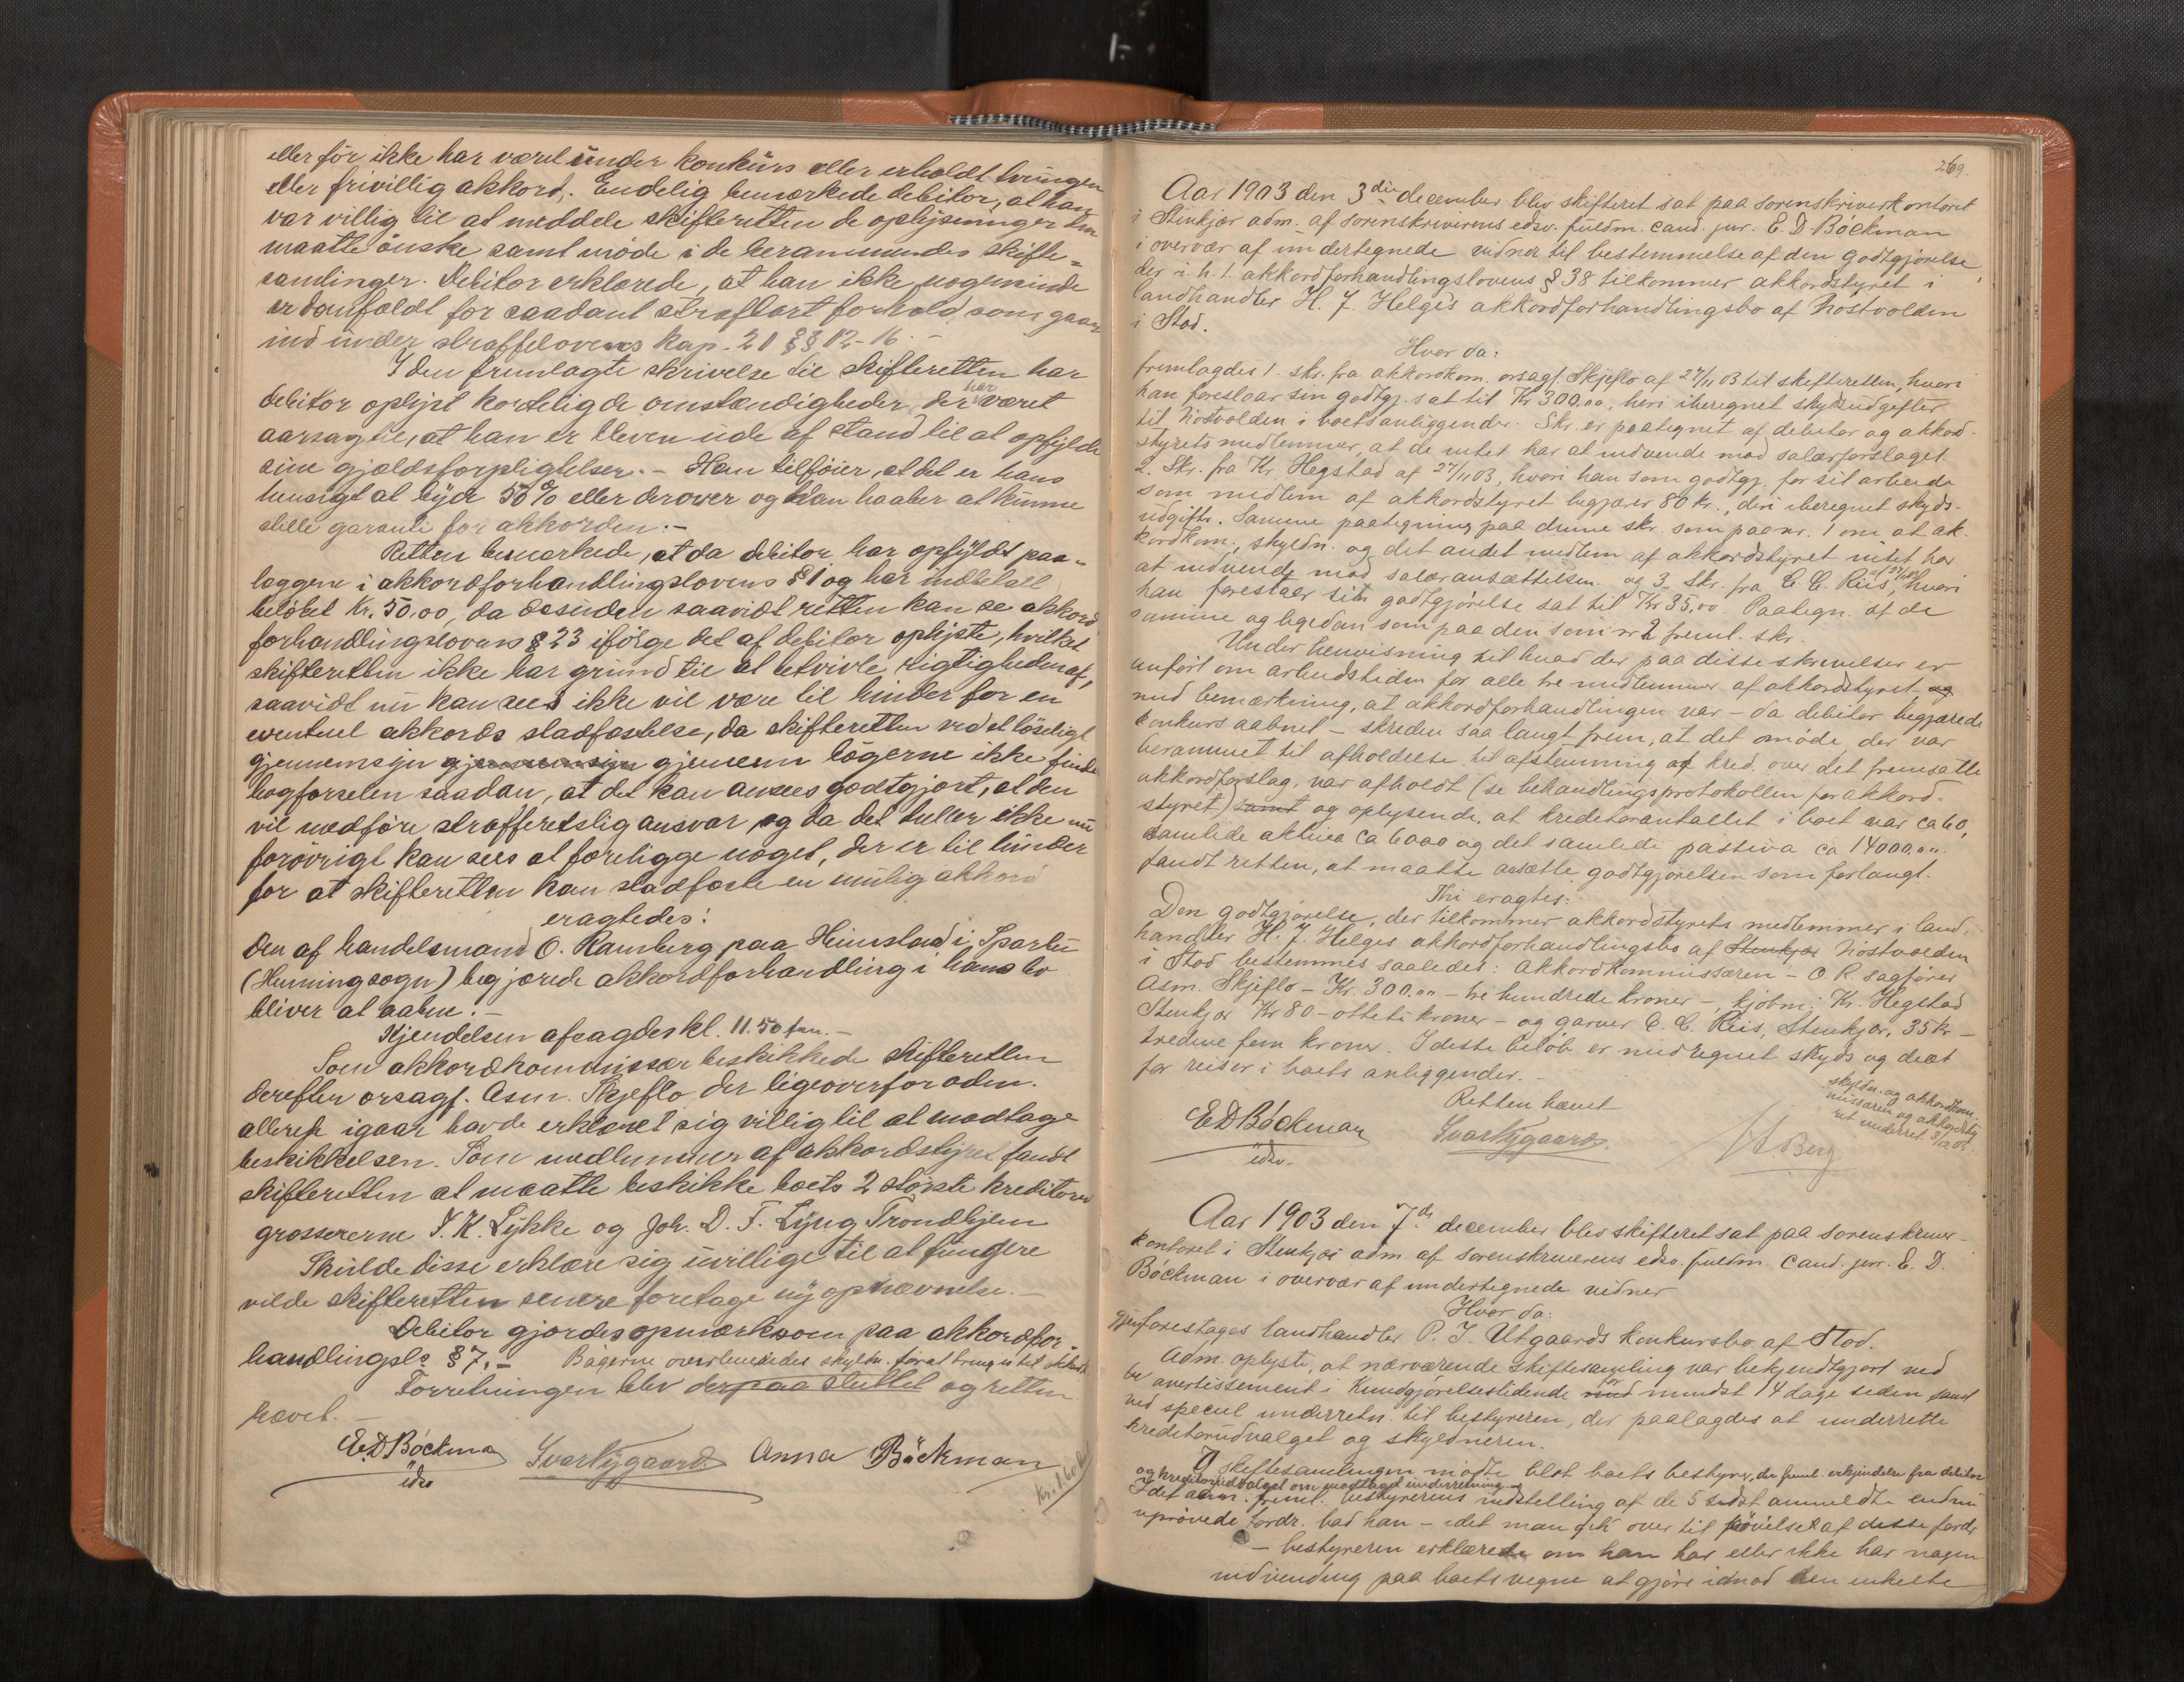 eller før ikke har været under konkurs eller erholdt tvungen
eller frivillig akkord. Endelig bemærkede debitor, at han
var villig til at meddele skifteretten de oplysninger den
maatte ønske samt møde i de berammende skifte-
samlinger. Debitor erklærede, at han ikke nogensinde
er domfældt for saadant strafbart forhold som gaar
ind under straffelovens Kap. 21 §§ 12-16. -
I den fremlagte skrivelse til skifteretten har
debitor oplyst kortelig de omstændigheder, der har været
aarsag til, at han er bleven ude af stand til at opfylde
sine gjældsforpligtelser. - Han tilføier, at det er hans
hensigt at byde 50% eller derover og han haaber at kunne
stille garanti for akkorden. -
Retten bemærkede, at da debitor har opfyldt paa-
læggene i akkordforhandlingslovens § 1 og har indbetalt
beløbet Kr. 50,00, da desuden saavidt retten kan se akkord
forhandlingslovens § 23 ifølge det af debitor oplyste, hvilket
skifteretten ikke har grund til at betvivle rigtigheden af,
saavidt nu kan sees ikke vil være til hinder for en
eventuel akkords stadfæstelse, da skifteretten ved et løseligt
gjennemsyn gjennemsyn gjennem bøgerne ikke finder
bogførselen saadan, at det kan ansees godtgjort, at den
vil medføre strafferetslig ansvar og da det heller ikke nu
forøvrigt kan sees at foreligge noget, der er til hinder
for at skifteretten kan stadfæste en mulig akkord
eragtedes:
Den af handelsmand O. Ramberg paa Heimstad i Sparbu
(Henning sogn) begjærede akkordforhandling i hans bo
bliver at aabne. -
Kjendelsen afsagdes kl. 11.50 fm. -
Som akkordkommissær beskikkede skifteretten
derefter orsagf. Asm. Skjeflo der ligeoverfor
allerede igaar havde erklæret sig villig til at modtage
beskikkelsen. Som medlemmer af akkordstyret fandt
skifteretten at maatte beskikke boets 2 største kreditorer
grossererne I. K. Lykke og Joh. D. F. Lyng Trondhjem
Skulde disse erklære sig uvillige til at fungere
vilde skifteretten senere foretage ny opnævnelse. -
Debitor gjordes opmærksom paa akkordfor-
handlingsls § 7. - Bøgerne overleveredes skyldn. for at bringes til
Forretningen blev derpaa sluttet og retten
hævet. -
E.D Bøckman Ivar Nygaard Anna Bøckman
edsv
269.
Aar 1903 den 3die december blev skifteret sat paa sorenskriverkontoret
i Stenkjær adm. af sorenskriverens edsv. fuldm. cand. jur. E. D. Bøckman
i overvær af undertegnede vidner til bestemmelse af den godtgjørelse,
der i h. t. akkordforhandlingslovens § 38 tilkommer akkordstyret i
landhandler H. J. Helges akkordforhandlingsbo af Nostvolden
i Stod.
Hvor da:
fremlagdes 1. skr. fra akkordkom. orsagf. Skjeflo af 27/11 03 til skifteretten, hvori
han foreslaar sin godtgj. sat til Kr 300,00, heri iberegnet skydsudgifter
til Nostvolden i boets anliggender. Skr. er paategnet af debitor og akkord-
styrets medlemmer, at de intet har at indvende mod salærforslaget.
2. Skr. fra Kr. Hegstad af 27/11 03, hvori han som godtgj. for sit arbeide
som medlem af akkordstyret begjærer 80 kr., deri iberegnet skyds-
udgifter. Samme paategning paa denne skr. som paa nr. 1 om at ak-
kordkom., skyldn. og det andet medlem af akkordstyret intet har
at indvende mod salæransættelsen. og 3. Skr. fra C. C. Riis, af 27/11 03 hvori
han foreslaar sin godtgjørelse sat til Kr 35,00. Paategn. af de
samme og ligedan som paa den som nr 2 freml. skr.
Under henvisning til hvad der paa disse skrivelser er
anført om arbeidstiden for alle tre medlemmer af akkordstyret, og
med bemærkning, at akkordforhandlingen var - da debitor begjærede
konkurs aabnet - skreden saa langt frem, at det møde, der var
berammet til afholdelse til afstemning af kred. over det fremsatte
akkordforslag, var afholdt (se behandlingsprotokollen for akkord-
styret) samt og oplysende, at kreditorantallet i boet var ca 60,
samlede aktiva ca 6000 og det samlede passiva ca 14000,00.
fandt retten, at maatte ansætte godtgjørelsen som forlangt.
Thi eragtes:
Den godtgjørelse, der tilkommer akkordstyrets medlemmer i land-
handler H. J. Helges akkordforhandlingsbo af Stenkjær Nostvolden
i Stod bestemmes saaledes: akkordkommissæren - O. R. sagfører
Asm. Skjeflo - Kr. 300,00 - tre hundrede kroner -, kjøbm. Kr. Hegstad
Stenkjær Kr 80 - otteti kroner - og garver C. C. Riis, Stenkjær, 35 kr -
tredive fem kroner. I disse beløb er medregnet skyds og diæt
for reiser i boets anliggender. -
Retten hævet
skyldn. og akkordkom-
missæren og akkordsty
ret underret. 3/12 03.
E D Bøckman Ivar Nygaard Berg.
edsv.
Aar 1903 den 7de december blev skifteret sat paa sorenskriver-
kontoret i Stenkjær adm. af sorenskriverens edsv. fuldm. cand. jur. E. D.
Bøckman i overvær af undertegnede vidner
Hvor da:
gjenforetages landhandler P. I. Utgaards konkursbo af Stod.
Adm. oplyste, at nærværende skiftesamling var bekjendtgjort ved
avertissement i Kundgjørelsestidende med for mindst 14 dage siden samt
ved speciel underretn. til bestyreren, der paalagdes at underrette
kreditorudvalget og skyldneren.
I skiftesamlingen mødte blot boets bestyrer, der freml. erkjendelse fra debitor
og kreditorudvalget om modtaget underretning. -
Idet adm. freml. bestyrerens indstilling af de 5 sidst anmeldte endnu
uprøvede fordr. bad han - idet man gik over til prøvelse af disse fordr
- bestyreren erklære om han har eller ikke har nogen
indvending paa boets vegne at gjøre imod den enkelte